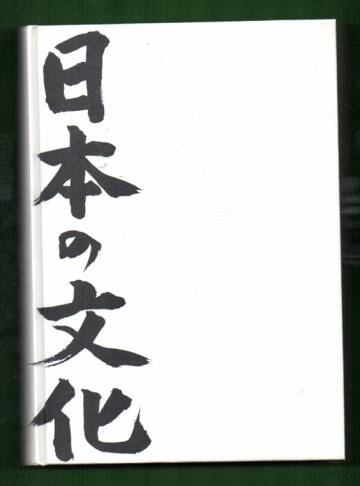 日本の文化